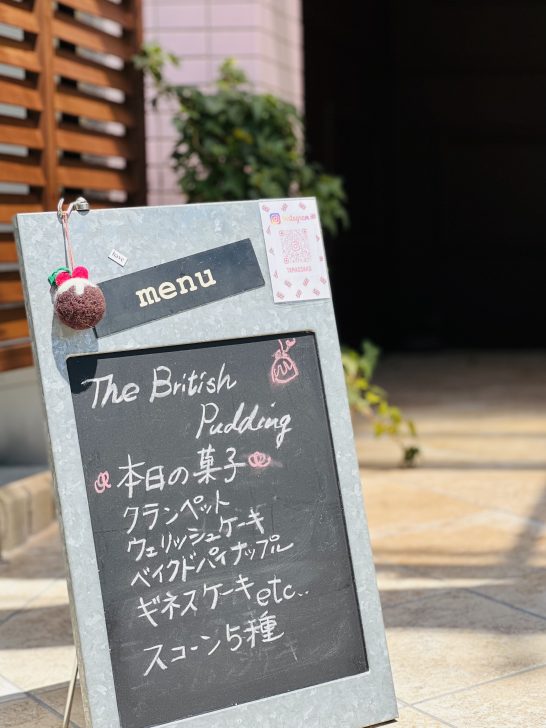 menu
Instagram
The British
Pudding
本日の菓子
クランペット
ウェリッシュケーキ
ベイクドパイナップル
ギネスケーキ etc..
スコーン5種